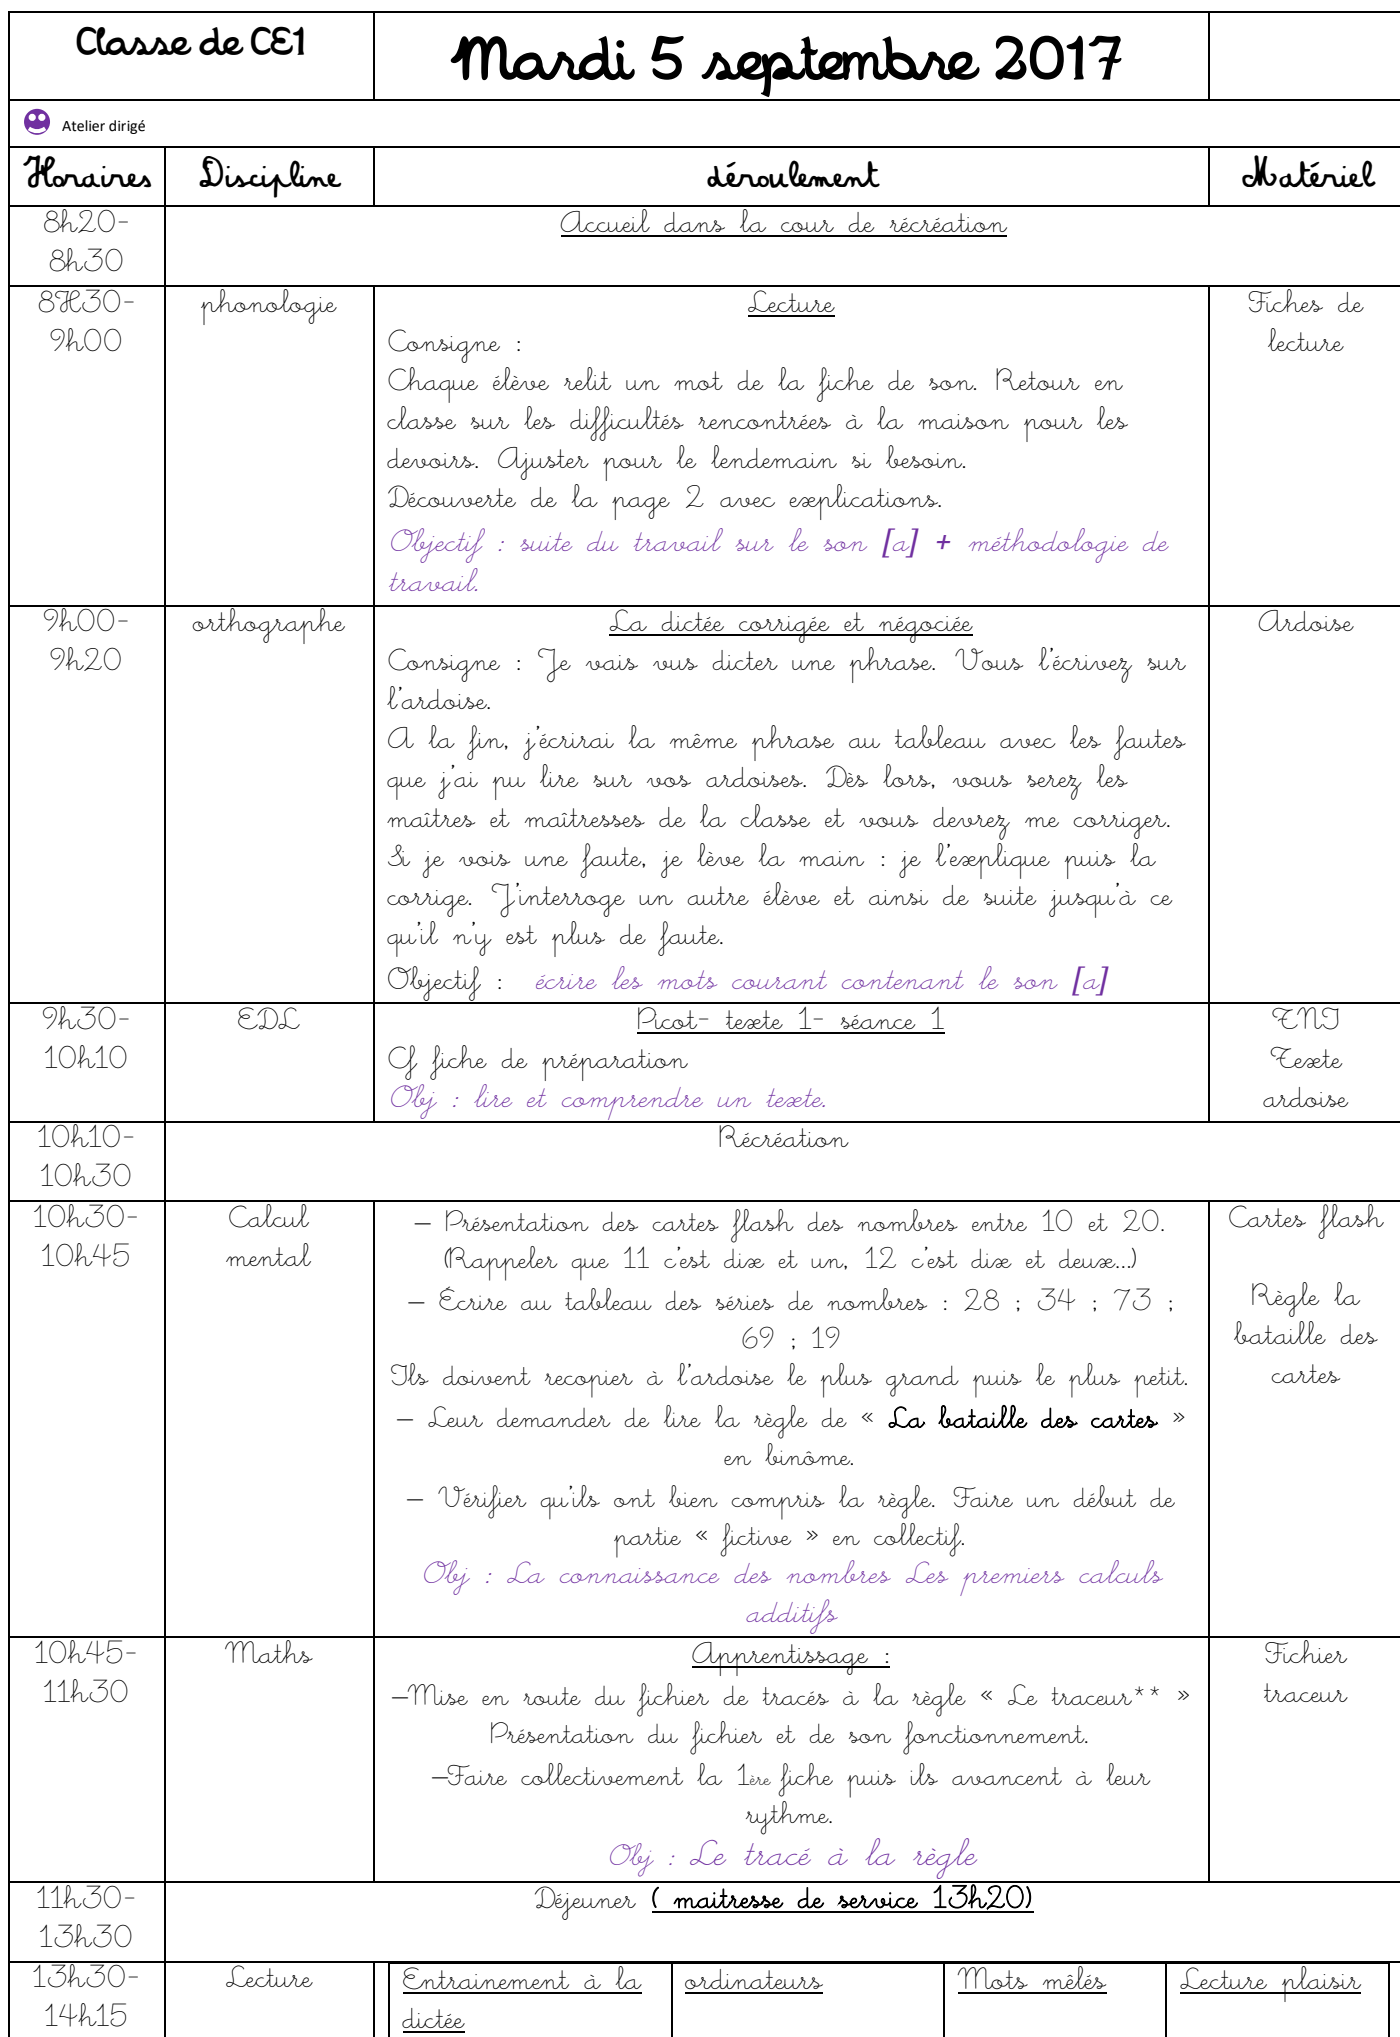 Classe de CE1
Mardi 5 septembre 2017
Atelier dirigé
Horaires Discipline déroulement Matériel
8h20-
8h30
Accueil dans la cour de récréation
8H30-
9h00
phonologie
Lecture
Consigne :
Chaque élève relit un mot de la fiche de son. Retour en
classe sur les difficultés rencontrées à la maison pour les
devoirs. Ajuster pour le lendemain si besoin.
Découverte de la page 2 avec explications.
Objectif : suite du travail sur le son [a] + méthodologie de
travail.
Fiches de
lecture
9h00-
9h20
orthographe
La dictée corrigée et négociée
Consigne : Je vais vus dicter une phrase. Vous l'écrivez sur
l'ardoise.
A la fin, j'écrirai la même phrase au tableau avec les fautes
que j'ai pu lire sur vos ardoises. Dès lors, vous serez les
maîtres et maîtresses de la classe et vous devrez me corriger.
Si je vois une faute, je lève la main : je l'explique puis la
corrige. J'interroge un autre élève et ainsi de suite jusqu'à ce
qu'il n'y est plus de faute.
Objectif : écrire les mots courant contenant le son [a]
Ardoise
9h30-
10h10
EDL
Picot- texte 1- séance 1
Cf fiche de préparation
Obj : lire et comprendre un texte.
TNI
Texte
ardoise
10h10-
10h30
Récréation
10h30-
10h45
Calcul
mental
– Présentation des cartes flash des nombres entre 10 et 20.
(Rappeler que 11 c'est dix et un, 12 c'est dix et deux…)
– Écrire au tableau des séries de nombres : 28 ; 34 ; 73 ;
69 ; 19
Ils doivent recopier à l'ardoise le plus grand puis le plus petit.
– Leur demander de lire la règle de « La bataille des cartes »
en binôme.
– Vérifier qu'ils ont bien compris la règle. Faire un début de
partie « fictive » en collectif.
Obj : La connaissance des nombres Les premiers calculs
additifs
Cartes flash
Règle la
bataille des
cartes
10h45-
11h30
Maths
Apprentissage :
–Mise en route du fichier de tracés à la règle « Le traceur** »
Présentation du fichier et de son fonctionnement.
–Faire collectivement la 1ère fiche puis ils avancent à leur
rythme.
Obj : Le tracé à la règle
Fichier
traceur
11h30-
13h30
Déjeuner ( maitresse de service 13h20)
13h30-
14h15
Lecture
Entrainement à la
dictée
ordinateurs
Mots mêlés
Lecture plaisir